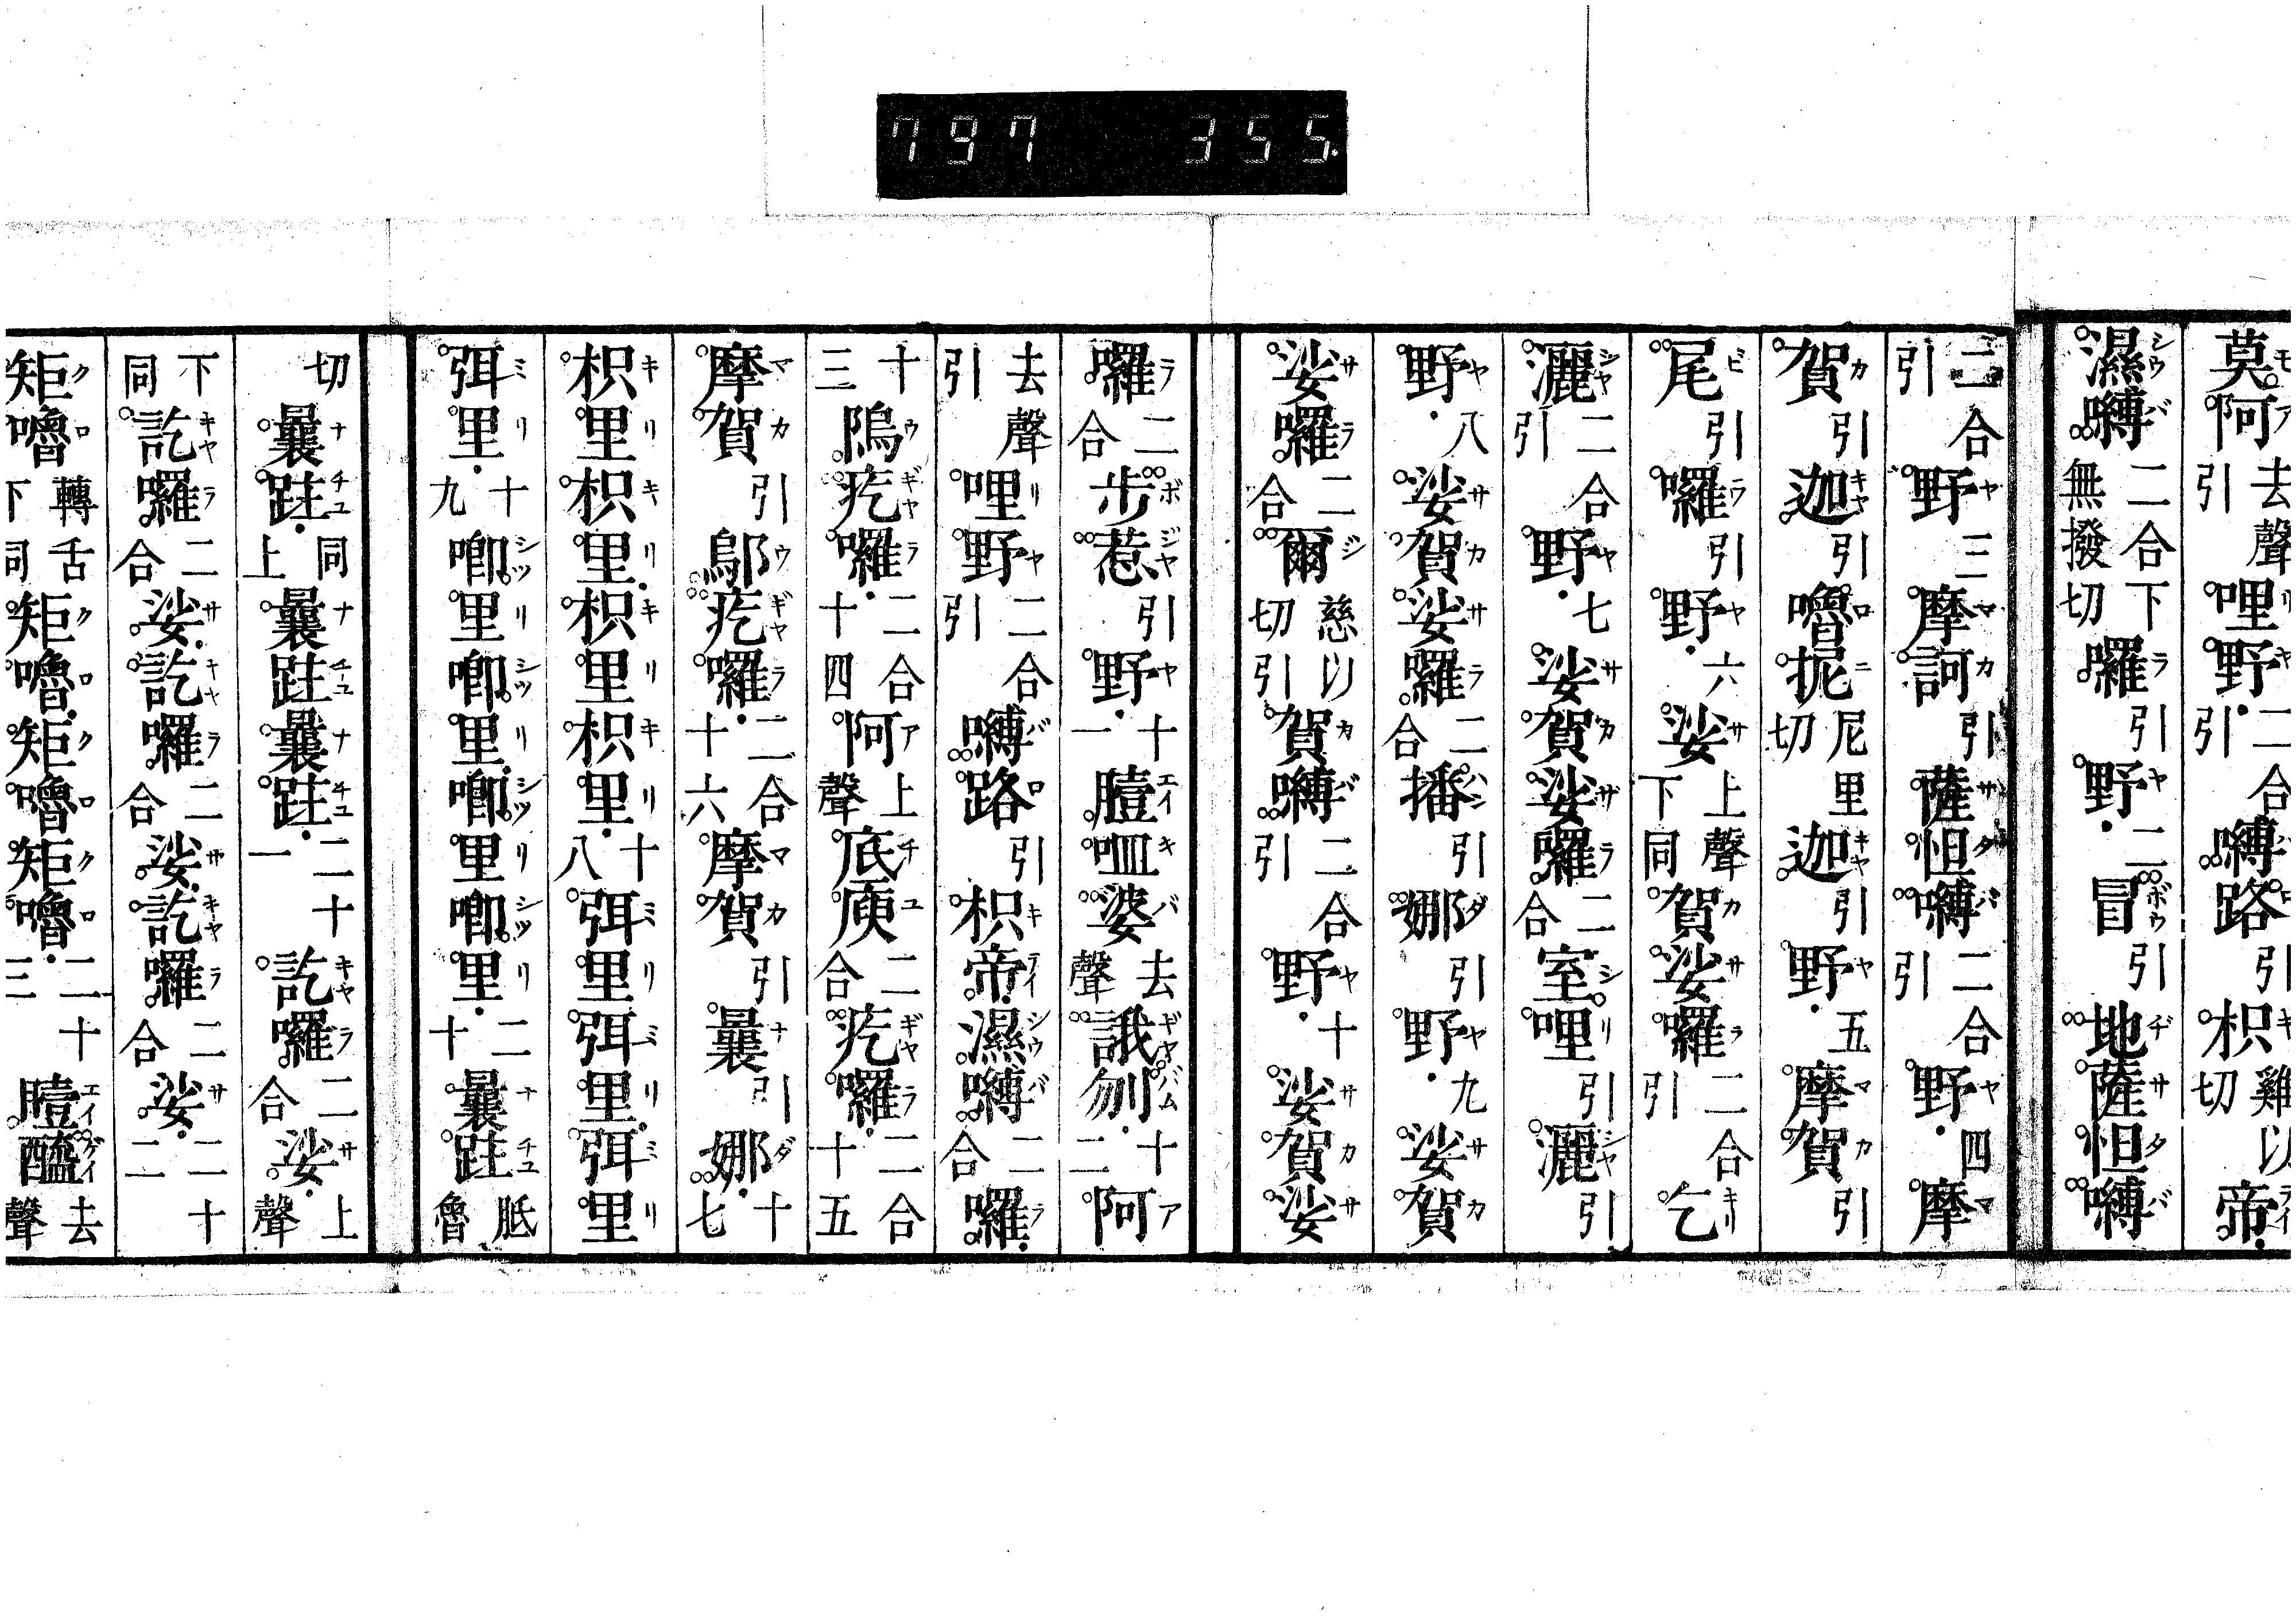 797 355.
莫阿去聲引哩野二合引嚩路引枳雞以切帝
濕嚩二合下無撥切囉引野二冒引地薩怛嚩
二合引野三摩訶引薩怛嚩二合引野四摩
賀引迦引嚕抳尼里切迦引野五摩賀引
尾引囉引野六娑上聲下同賀娑囉二合引乞
灑二合引野七娑賀娑囉二合室哩引灑引
野八娑賀娑囉二合播引娜引野九娑賀
娑囉二合爾慈以切引賀嚩二合引野十娑賀娑
囉二合步惹引野十一曀呬婆去聲誐刎十二阿
去聲引哩野二合引嚩路引枳帝濕嚩二合囉
十三隝疙囉二合十四阿上聲底庾二合疙囉二合十五
摩賀引鄔疙囉二合十六摩賀引曩引娜十七
枳里枳里枳里枳里十八弭里弭里弭里
弭里十九唧里唧里唧里唧里二十曩跓胝魯
切曩跓同上曩跓曩跓二十一訖囉二合娑上聲
下同訖囉二合娑訖囉二合娑訖囉二合娑二十二
矩嚕轉舌下同矩嚕矩嚕矩嚕二十三曀醯去聲